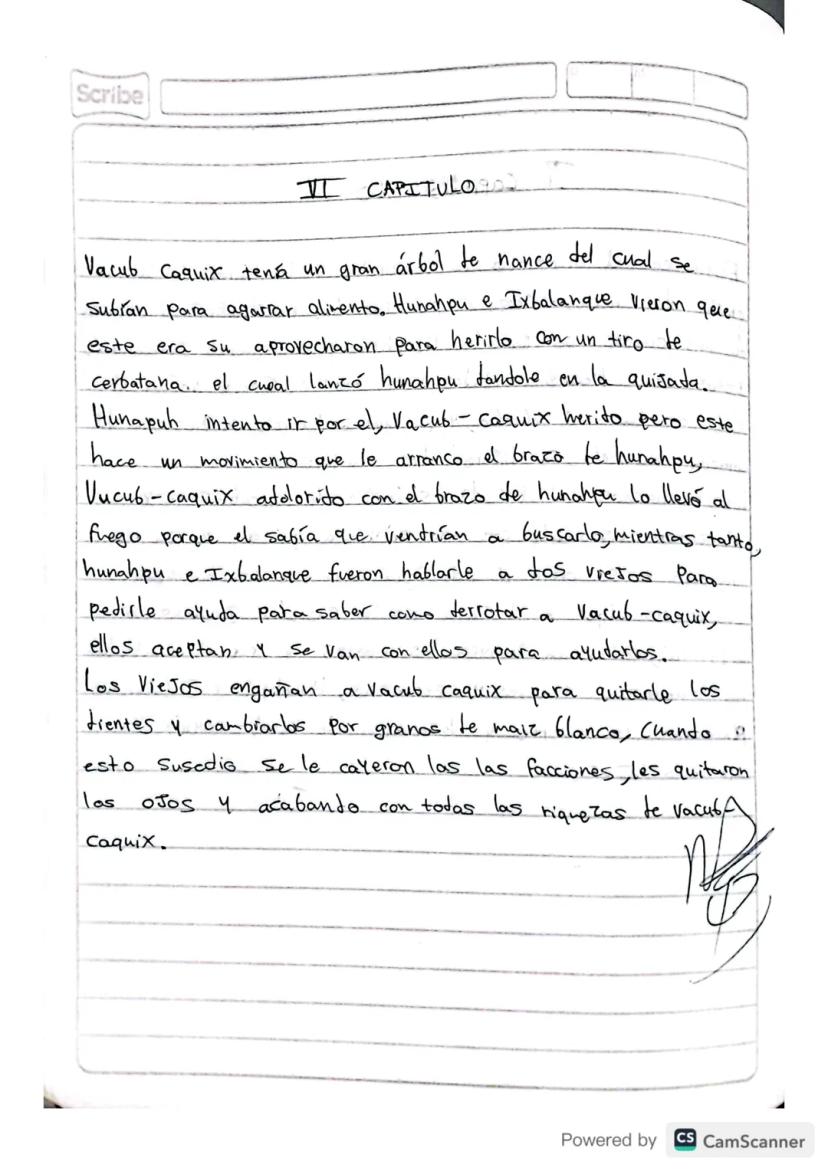 Scribe
VI CAPITULO
Vacub Caquix tená un gran árbol de nance del cual se
subían para agarrar alimento. Hunahpu e Ixbalanque vieron que
este era su aprovecharon para herirlo con un tiro de
cerbatana. el cual lanzó hunahpu dandole en la quijada.
Hunapuh intento ir por el, Vacub-Caquix herido pero este
hace un movimiento que le arranco el brazo de hunahpu,
Vucub-caquix adolorido con el brazo de hunahpu lo llevó al
fuego porque el sabía que vendrían a buscarlo, mientras tanto,
hunahpu e Ixbalanque fueron hablarle a dos viejos para
pedirle ayuda para saber como derrotar a Vacub-caquix,
ellos aceptan y se van con ellos para ayudarlos.
Los Viejos engañan a Vacub caquix para quitarle los
dientes y cambiarlos por granos de maiz blanco, Cuando
esto susedio se le cayeron las las facciones, les quitaron
los ojos y acabando con todas las riquezas de vacub-
caquix.
Powered by CS CamScanner